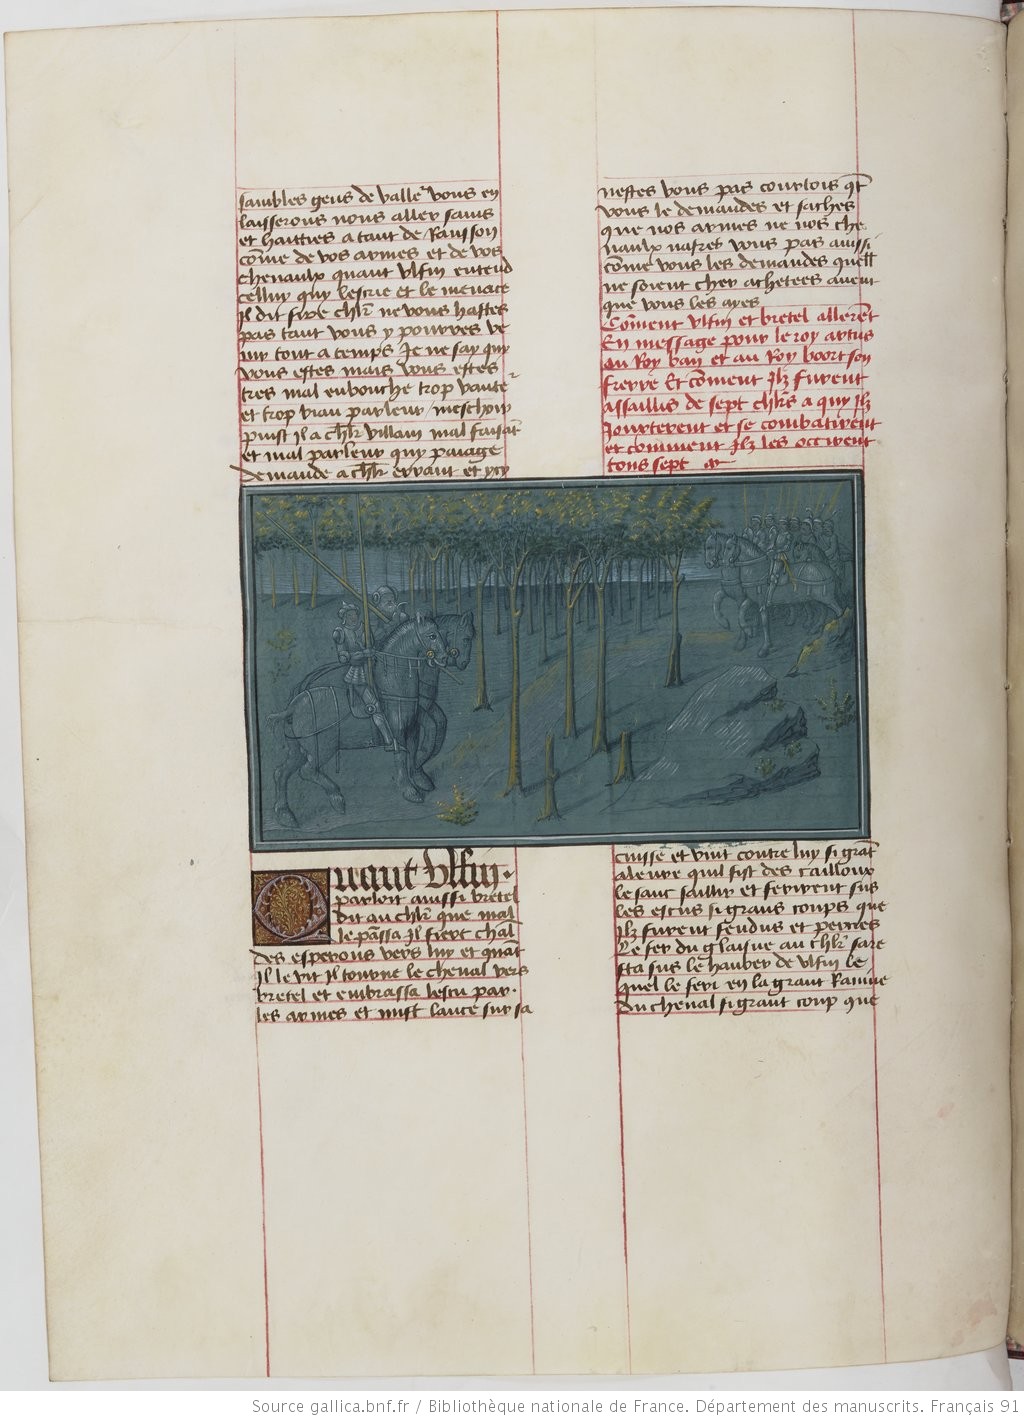 saibles gens de valle vous en
laisserons nous aller sains
et haities a tant de Ranson
cõme de vos armes et de vos
chevaulx quant Ulfin entend
celluy quy lescrie et le menace
Il dit sire chlr ne vous hastes
pas tant vous y pourres ve
nir tout a temps Je ne say quy
vous estes mais vous estes
tres mal enbouche trop vante
et trop vain parleur /
puist il a chlr villain mal faisãt
et mal parleur quy paiage
demande a chlr errant et ycy
nestes vous pas courtois qñt
vous le demandes et saches
que nos armes ne nos che
vaulx naures vous pas aussi
cõme vous les demandes quell
ne soient cher achetees avent
que vous les ayes
Cõment Ulfin et bretel allerẽt
En message pour le roy artus
au Roy ban et au Roy boort son
frerre Et cõment Ilz furent
assaillis de sept chlrs a quy Ilz
Jousterent et se combatirent
et comment Ilz les occirent
tous sept
Quant Ulfin.
parloit aussi bretel
dit au chlr que mal
le passa Il fiert
des esperons vers luy et quãt
Il le vit Il tourne le cheval vers
bretel et embrassa lescu par.
les armes et mist lance sur sa
cuisse et vint contre luy si grãt
aleure quil fist des cailloux
le sanc saillir et ferirent sus
les escus si grans coups que
Ilz furent fendus et perces
Le fer du glaisve au chlr sare
sta sus le hauber de Ulfin le
quel le feri en la grant Ravine
du cheval si grant coup que
Source gallica.bnf.fr / Bibliothèque nationale de France. Département des manuscrits. Français 91